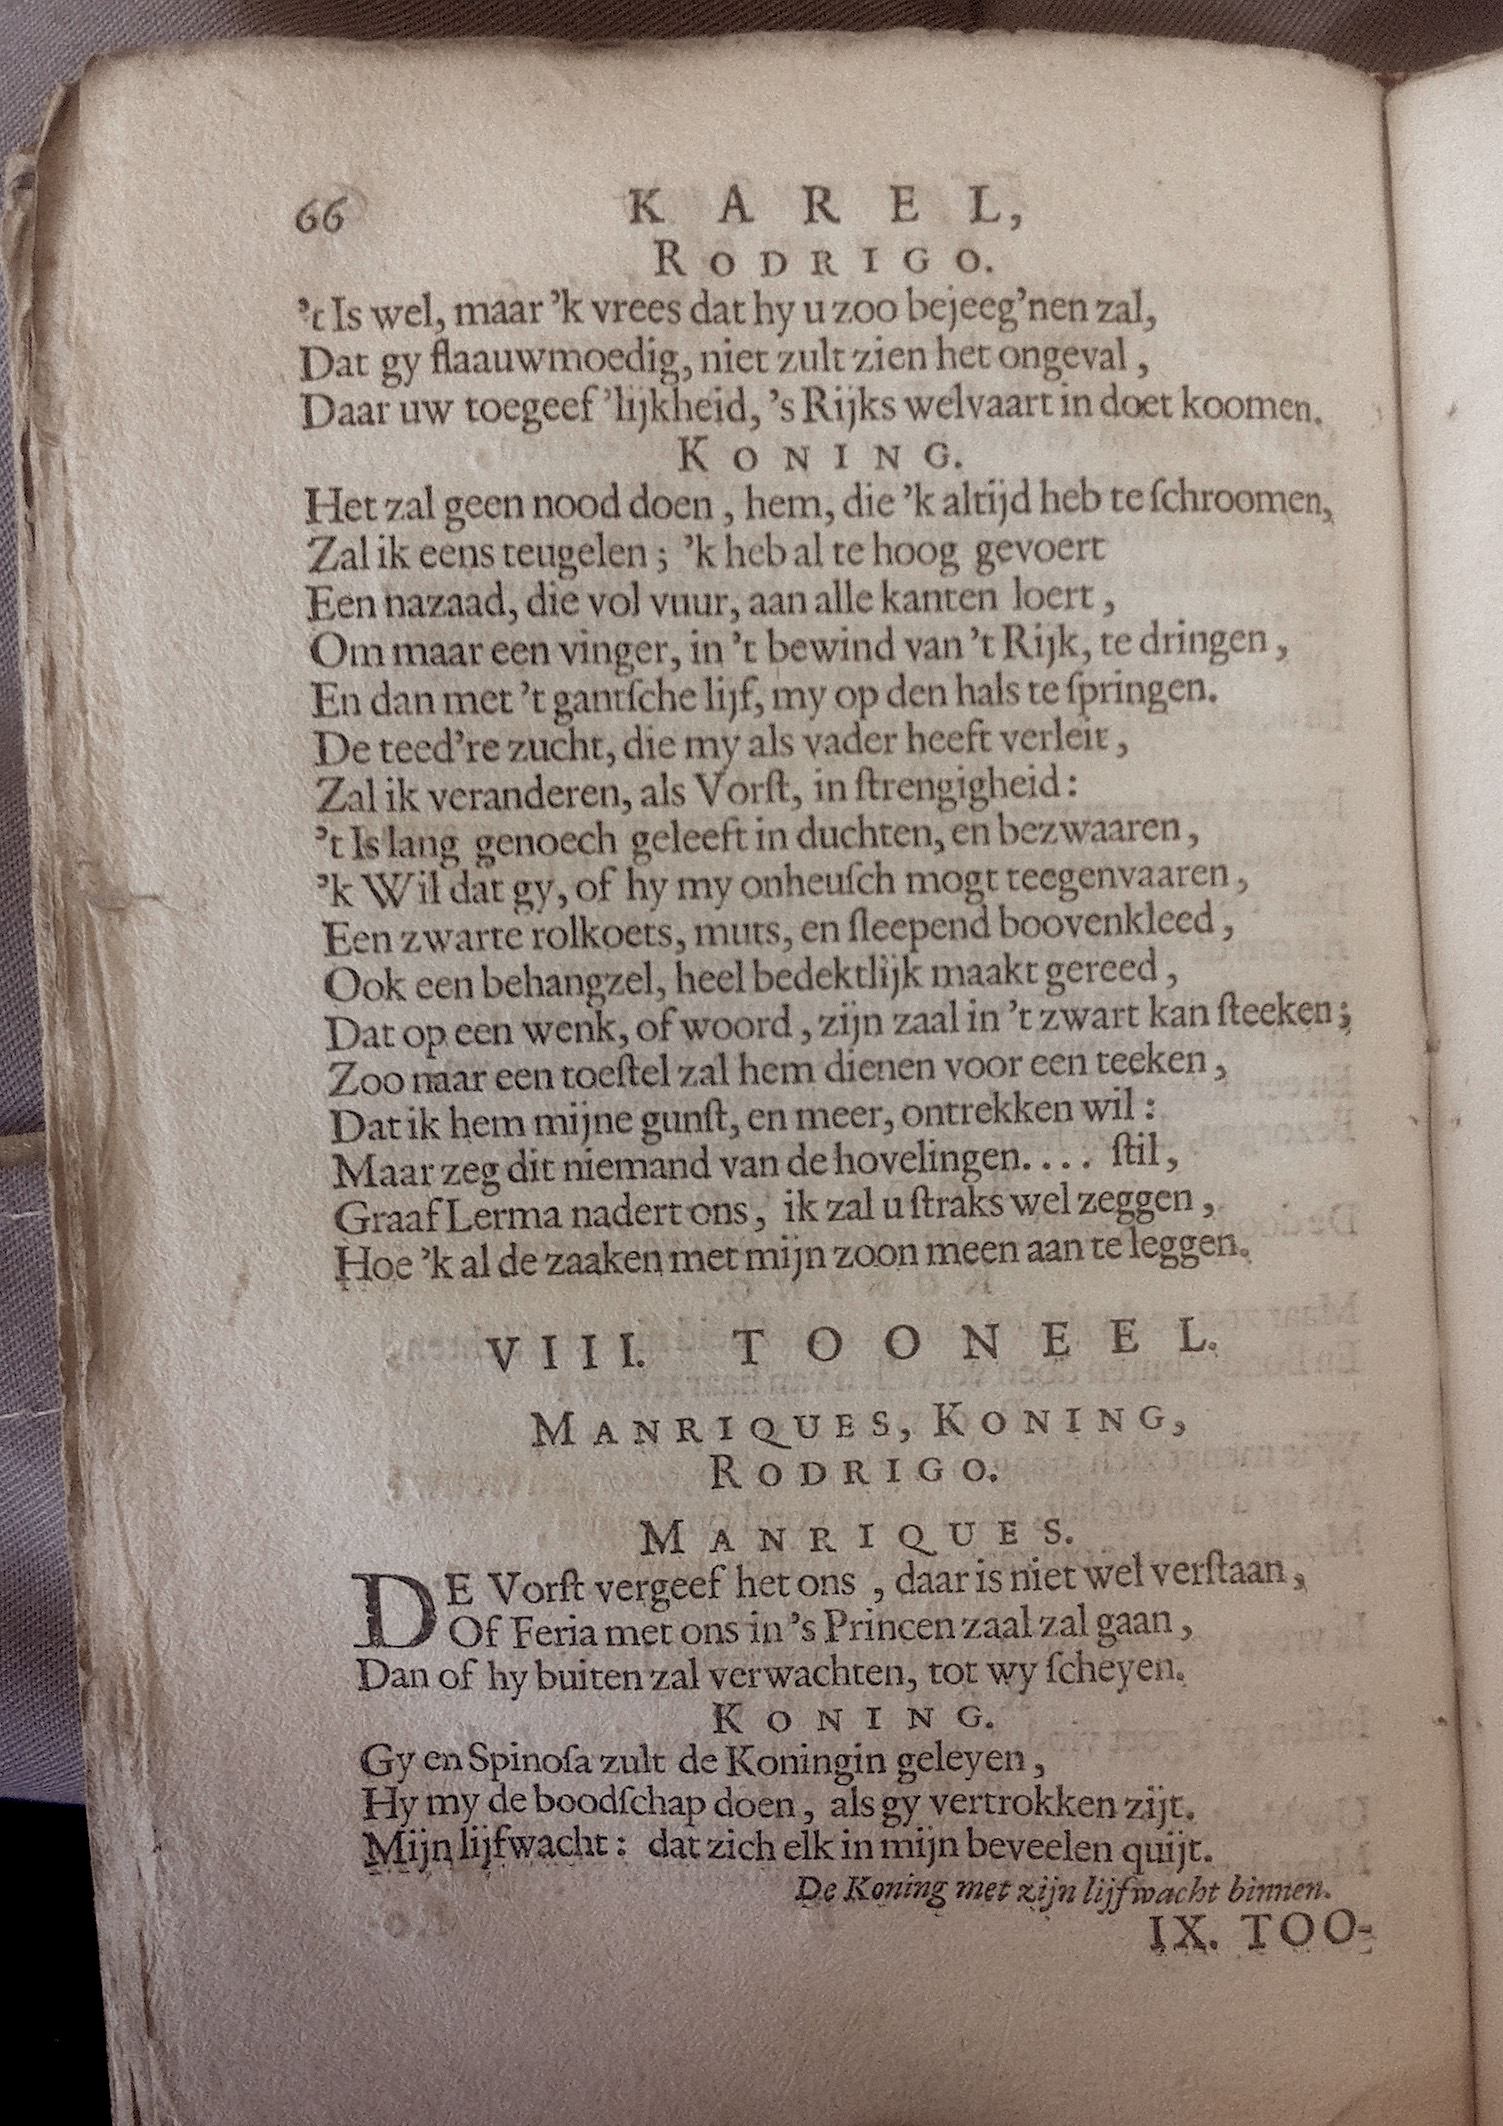 66 KAREL,
RODRIGO.
't Is wel, maar 'k vrees dat hy u zoo bejeeg'nen zal,
Dat gy flaauwmoedig, niet zult zien het ongeval,
Daar uw toegeef'lijkheid, 's Rijks welvaart in doet koomen.
KONING.
Het zal geen nood doen, hem, die 'k altijd heb te ſchroomen,
Zal ik eens teugelen; 'k heb al te hoog gevoert
Een nazaad, die vol vuur, aan alle kanten loert,
Om maar een vinger, in 't bewind van 't Rijk, te dringen,
En dan met 't gantſche lijf, my op den hals te ſpringen.
De teed're zucht, die my als vader heeft verleit,
Zal ik veranderen, als Vorſt, in ſtrengigheid:
't Is lang genoech geleeft in duchten, en bezwaaren,
'k Wil dat gy, of hy my onheuſch mogt teegenvaaren,
Een zwarte rolkoets, muts, en ſleepend boovenkleed,
Ook een behangzel, heel bedektlijk maakt gereed,
Dat op een wenk, of woord, zijn zaal in 't zwart kan ſteeken;
Zoo naar een toeſtel zal hem dienen voor een teeken,
Dat ik hem mijne gunſt, en meer, ontrekken wil:
Maar zeg dit niemand van de hovelingen.... ſtil,
Graaf Lerma nadert ons, ik zal u ſtraks wel zeggen,
Hoe 'k al de zaaken met mijn zoon meen aan te leggen.
VIII. TOONEEL.
MANRIQUES, KONING,
RODRIGO.
MANRIQUES.
DE Vorſt vergeef het ons, daar is niet wel verſtaan,
Of Feria met ons in 's Princen zaal zal gaan,
Dan of hy buiten zal verwachten, tot wy ſcheyen.
KONING.
Gy en Spinoſa zult de Koningin geleyen,
Hy my de boodſchap doen, als gy vertrokken zijt.
Mijn lijfwacht: dat zich elk in mijn beveelen quijt.
De Koning met zijn lijfwacht binnen.
IX. TOO-